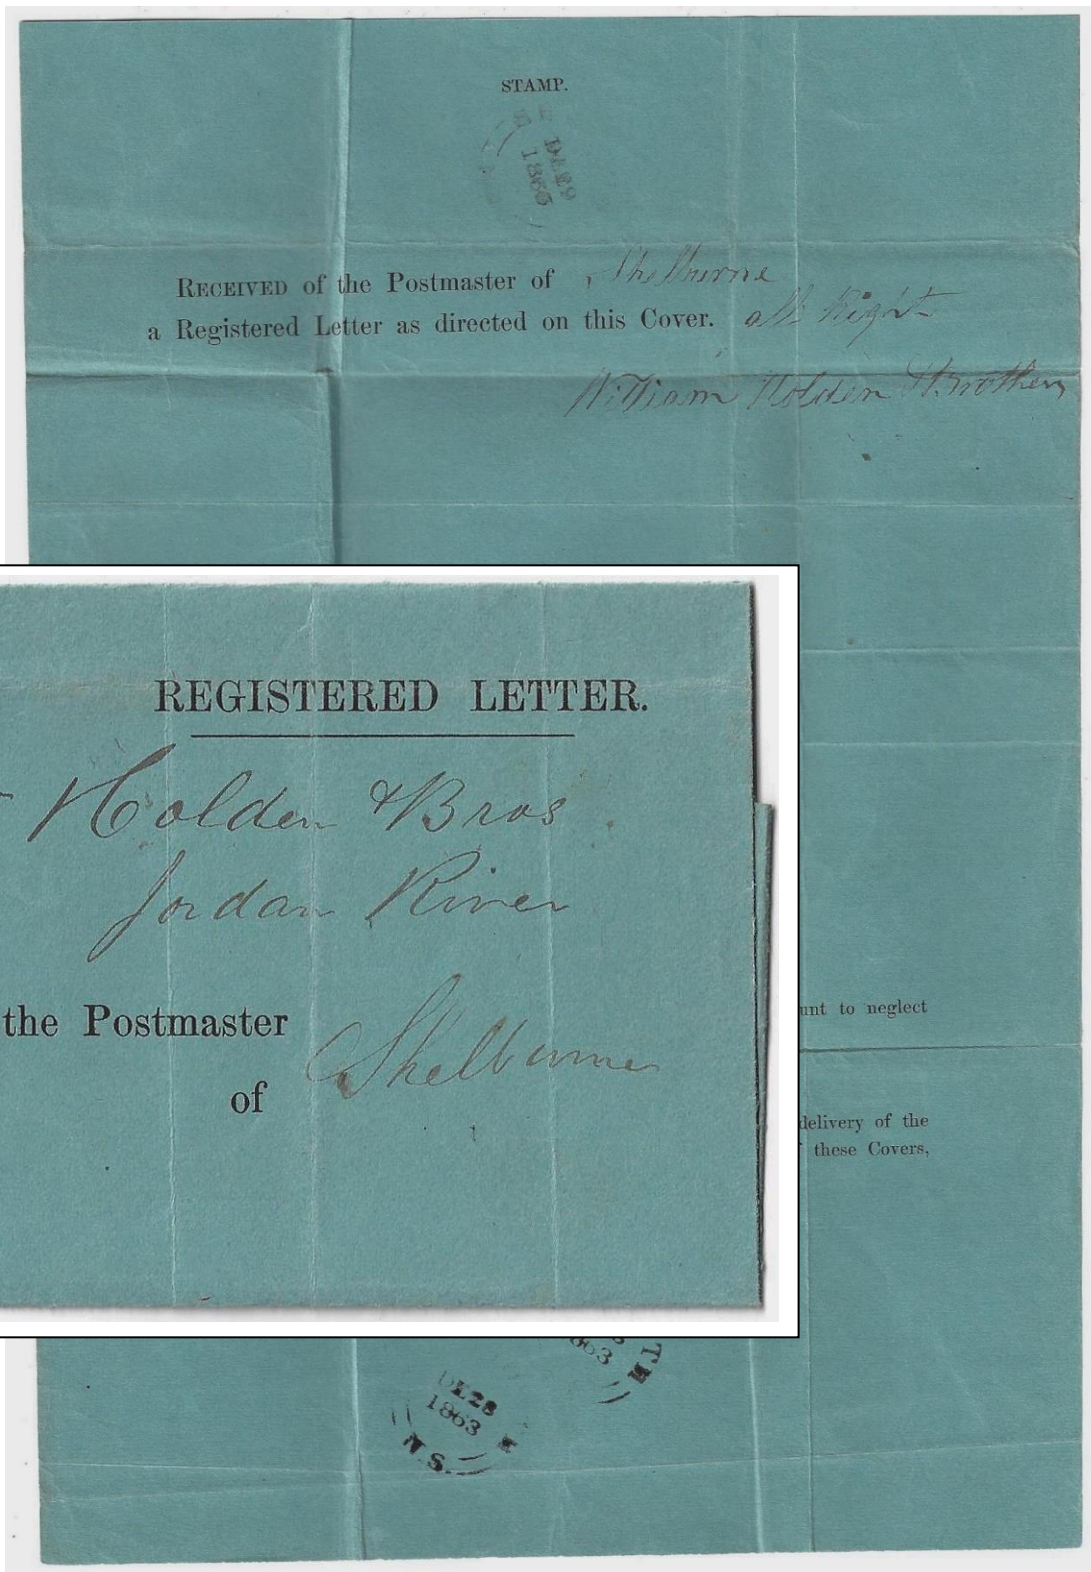 STAMP.
DE 29
1863
RECEIVED of the Postmaster of Shelburne
a Registered Letter as directed on this Cover. all Right
William Holden & Brothers
REGISTERED LETTER.
Holden & Bros
Jordan River
the Postmaster
of Shelburne
unt to neglect
delivery of the
these Covers,
863
TE
DE 28
1863
N.S.